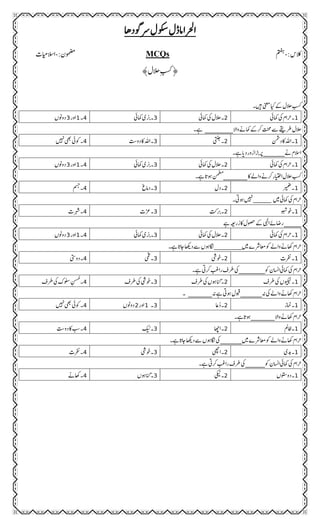 الحرا ماڈل سکول سرگودھا
کلاس :- ہفتم MCQs مضمون :- اسلامیات
﴿ کسبِ حلال ﴾
کسبِ حلال کے معنی ہیں۔
1۔ حرام کی کمائی 2۔ حلال کی کمائی 3۔ بُری کمائی 4۔ 1 اور 3 دونوں
حلال طریقے سے محنت کر کے کمانے والا ______ ہے۔
1۔ اللہ کا دشمن 2۔ جنتی 3۔ اللہ کا دوست 4۔ کوئی بھی نہیں
اسلام نے ______ پر بڑا زور دیا ہے۔
1۔ حرام کی کمائی 2۔ حلال کی کمائی 3۔ بُری کمائی 4۔ 1 اور 3 دونوں
کسبِ حلال اختیار کرنے والے کا ______ مطمئن ہوتا ہے۔
1۔ ضمیر 2۔ دل 3۔ دماغ 4۔ جسم
حرام کی کمائی میں ______ نہیں ہوتی۔
1۔ خوشبو 2۔ برکت 3۔ عزت 4۔ شہرت
______ رضائے الٰہی کے حصول کا ذریعہ ہے
1۔ حرام کی کمائی 2۔ حلال کی کمائی 3۔ بُری کمائی 4۔ 1 اور 3 دونوں
حرام کمانے والے کو معاشرے میں ______ کی نگاہوں سے دیکھا جاتا ہے۔
1۔ نفرت 2۔ خوشی 3۔ غمی 4۔ دوستی
حرام کی کمائی انسان کو ______ کی طرف راغب کرتی ہے۔
1۔ نیکیوں کی طرف 2۔ گناہوں کی طرف 3۔ خوشی کی طرف 4۔ حسن سلوک کی طرف
حرام کمانے والے کی نہ ______ قبول ہوتی ہے نہ ______۔
1۔ نماز 2۔ دُعا 3۔ 1 اور 2 دونوں 4۔ کوئی بھی نہیں
حرام کمانے والا ______ ہوتا ہے۔
1۔ ظالم 2۔ اچھا 3۔ نیک 4۔ سب کا دوست
حرام کمانے والے کو معاشرے میں ______ کی نگاہوں سے دیکھا جاتا ہے۔
1۔ بدی 2۔ اچھی 3۔ خوشی 4۔ نفرت
حرام کی کمائی انسان کو ______ کی طرف راغب کرتی ہے۔
1۔ دوستوں 2۔ نیکی 3۔ گناہوں 4۔ کھانے